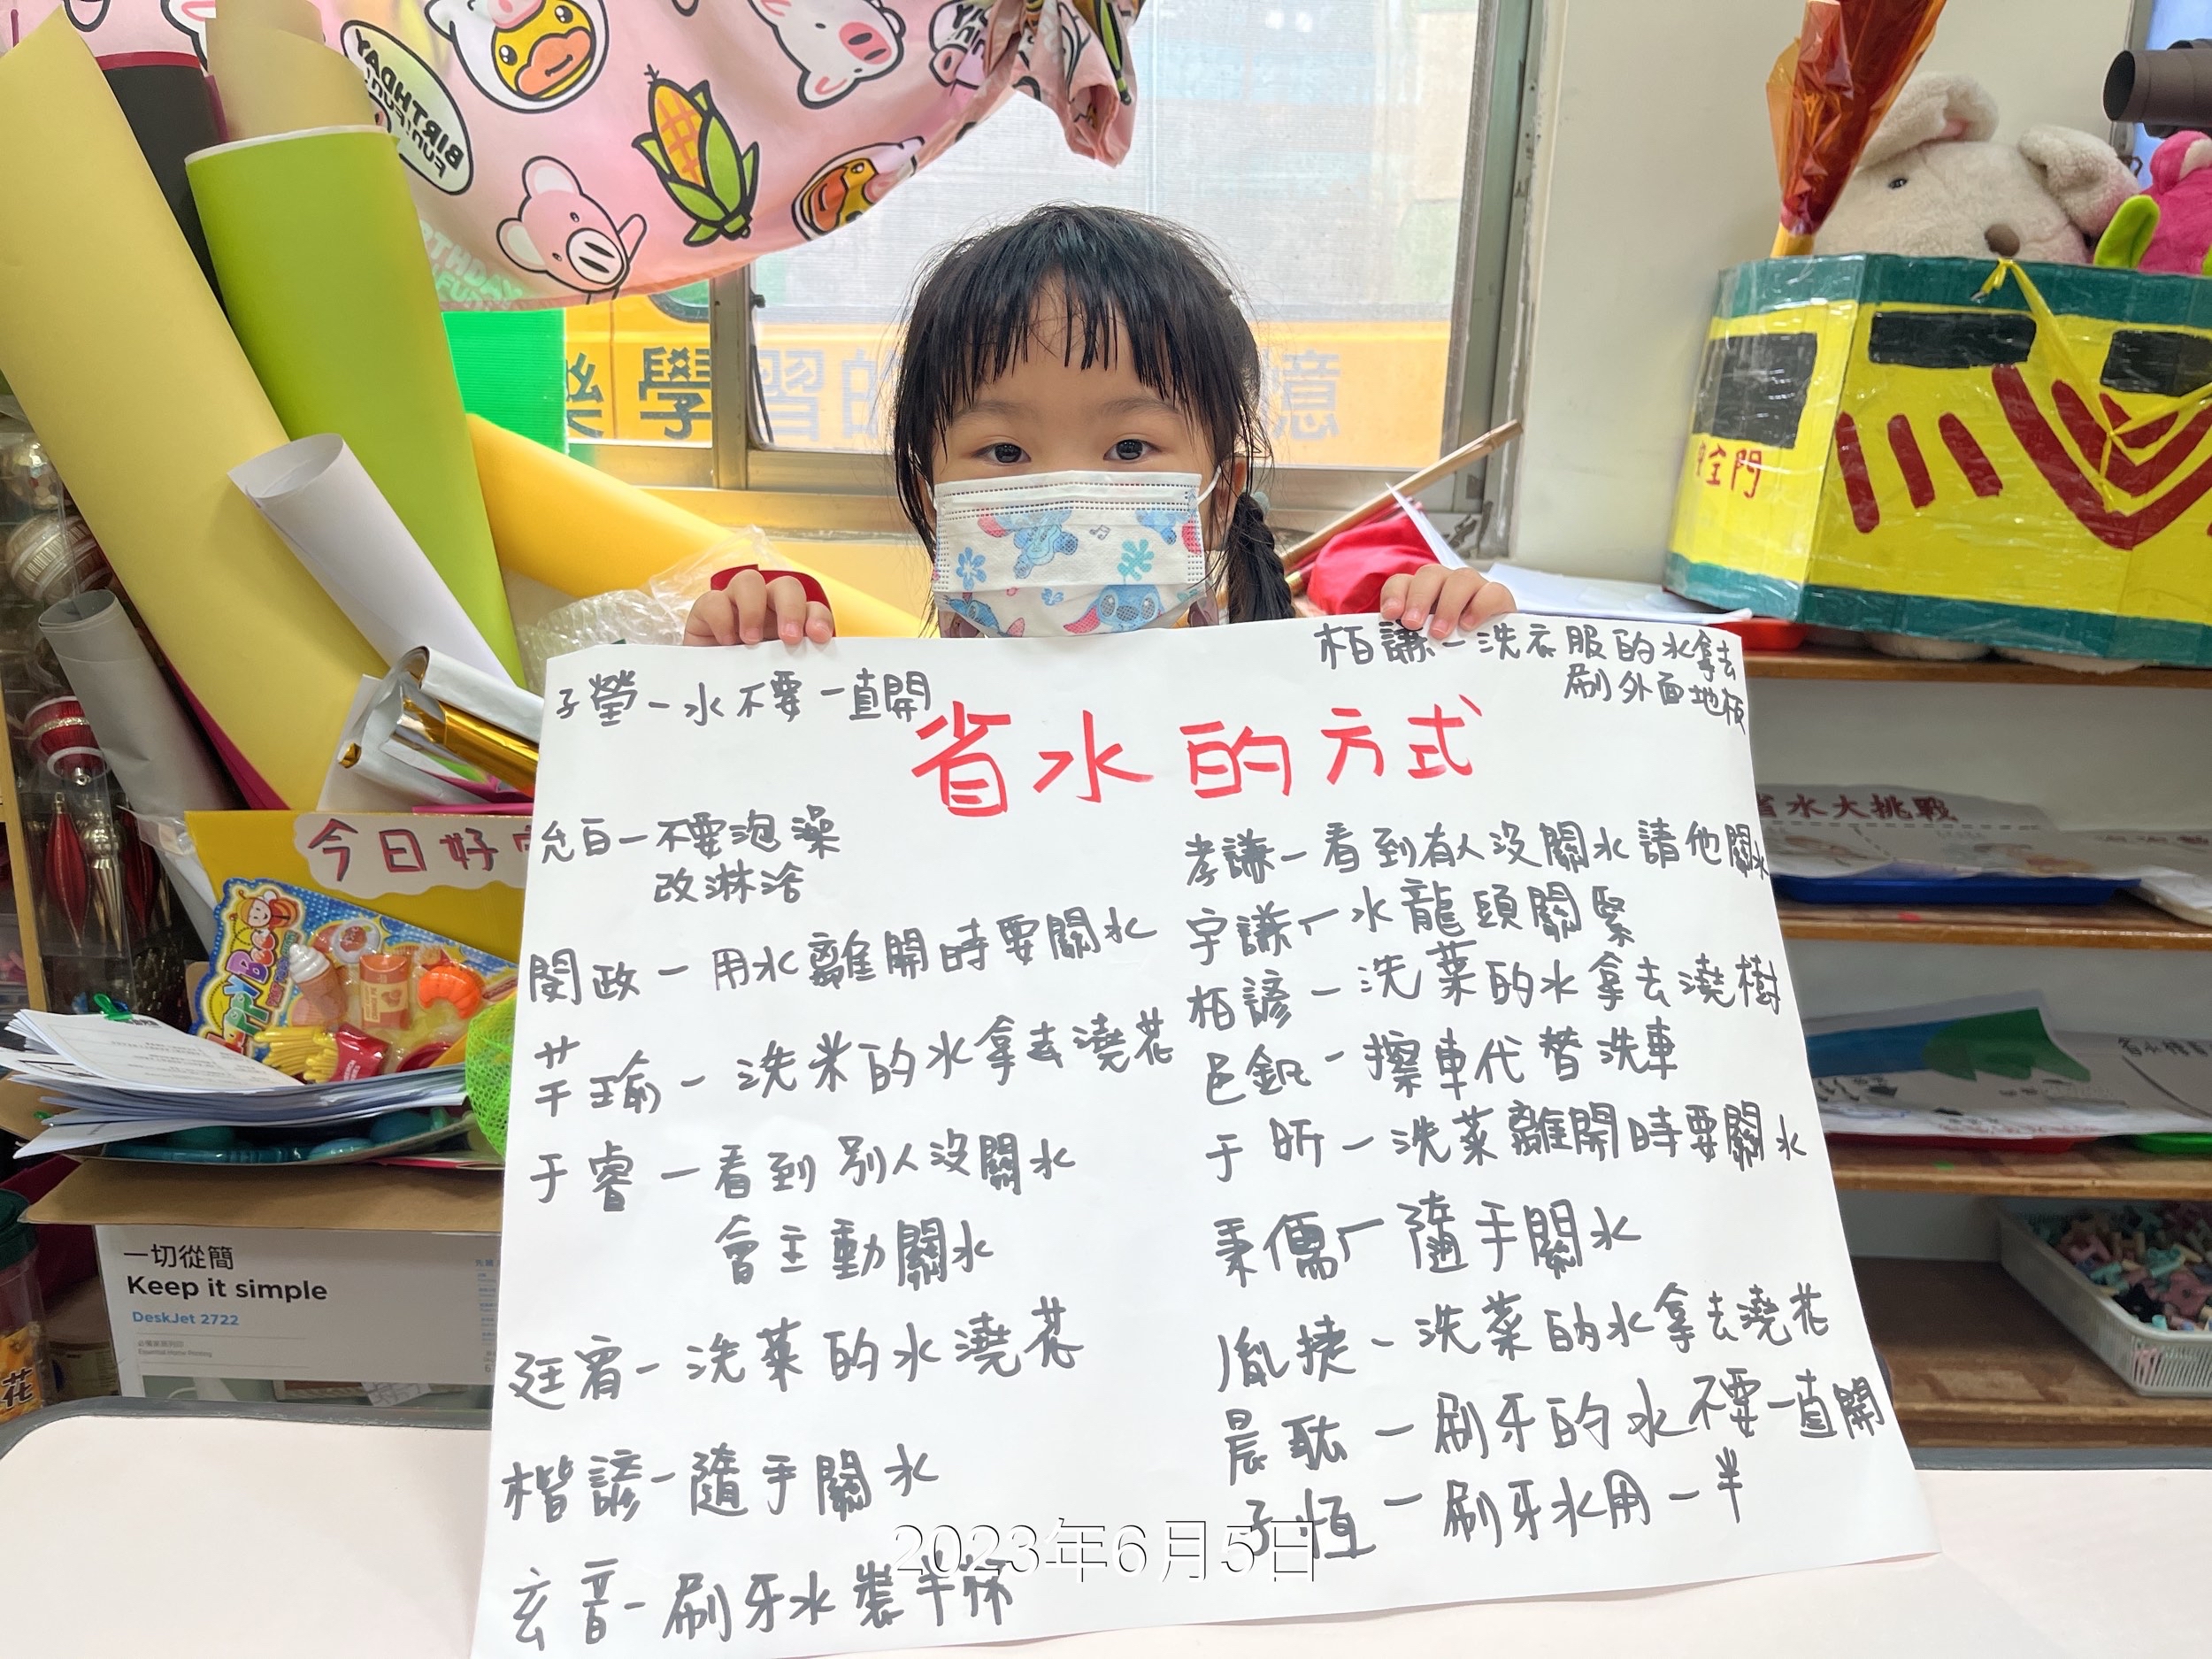 BIRTHDAY
FUN!FUN!
BIRTHDAY
樂學習的
憶
安全門
子瑩－水不要一直開
柏謙－洗衣服的水拿去
刷外面地板
省水的方式
允百－不要泡澡
改淋浴
閔政－用水離開時要關水
芊瑜－洗米的水拿去澆花
于睿－看到別人沒關水
會主動關水
廷宥－洗菜的水澆花
楷諺－隨手關水
玄音－刷牙水裝半杯
孝謙－看到有人沒關水請他關水
宇謙－水龍頭關緊
柏諺－洗菜的水拿去澆樹
邑釩－擦車代替洗車
于昕－洗菜離開時要關水
秉儒－隨手關水
胤捷－洗菜的水拿去澆花
晨耘－刷牙的水不要一直開
子恒－刷牙水用一半
今日好
省水大挑戰
一切從簡
Keep it simple
DeskJet 2722
Essential Home Printing
花
2023年6月5日